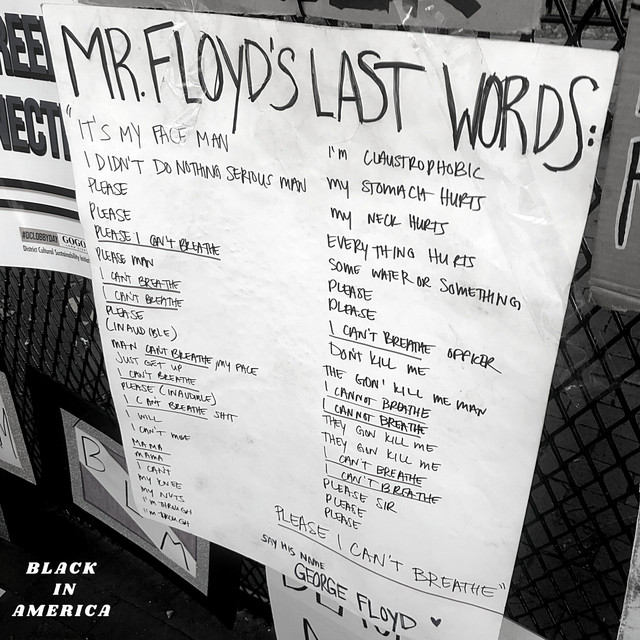 MR. FLOYD'S LAST WORDS:
"IT'S MY FACE MAN
I DIDN'T DO NOTHING SERIOUS MAN
PLEASE
PLEASE
PLEASE I CAN'T BREATHE
PLEASE MAN
I CANT BREATHE
I CAN'T BREATHE
PLEASE
(INAUDIBLE)
MAN CANT BREATHE, MY FACE
JUST GET UP
I CAN'T BREATHE
PLEASE (INAUDIBLE)
I CANT BREATHE SHIT
I WILL
I CAN'T MOVE
MAMA
MAMA
I CANT
MY KNEE
MY NUTS
I'M THROUGH
I'M THROUGH
I'M CLAUSTROPHOBIC
MY STOMACH HURTS
MY NECK HURTS
EVERYTHING HURTS
SOME WATER OR SOMETHING
PLEASE
PLEASE
I CAN'T BREATHE OFFICER
DON'T KILL ME
THE GON' KILL ME MAN
I CANNOT BREATHE
I CANNOT BREATHE
THEY GON KILL ME
THEY GON KILL ME
I CAN'T BREATHE
I CAN'T BREATHE
PLEASE SIR
PLEASE
PLEASE
PLEASE I CAN'T BREATHE"
SAY HIS NAME
GEORGE FLOYD
#DCLOBBYDAY GOGO
District Cultural Sustainability
B
L
M
BLACK
IN
AMERICA